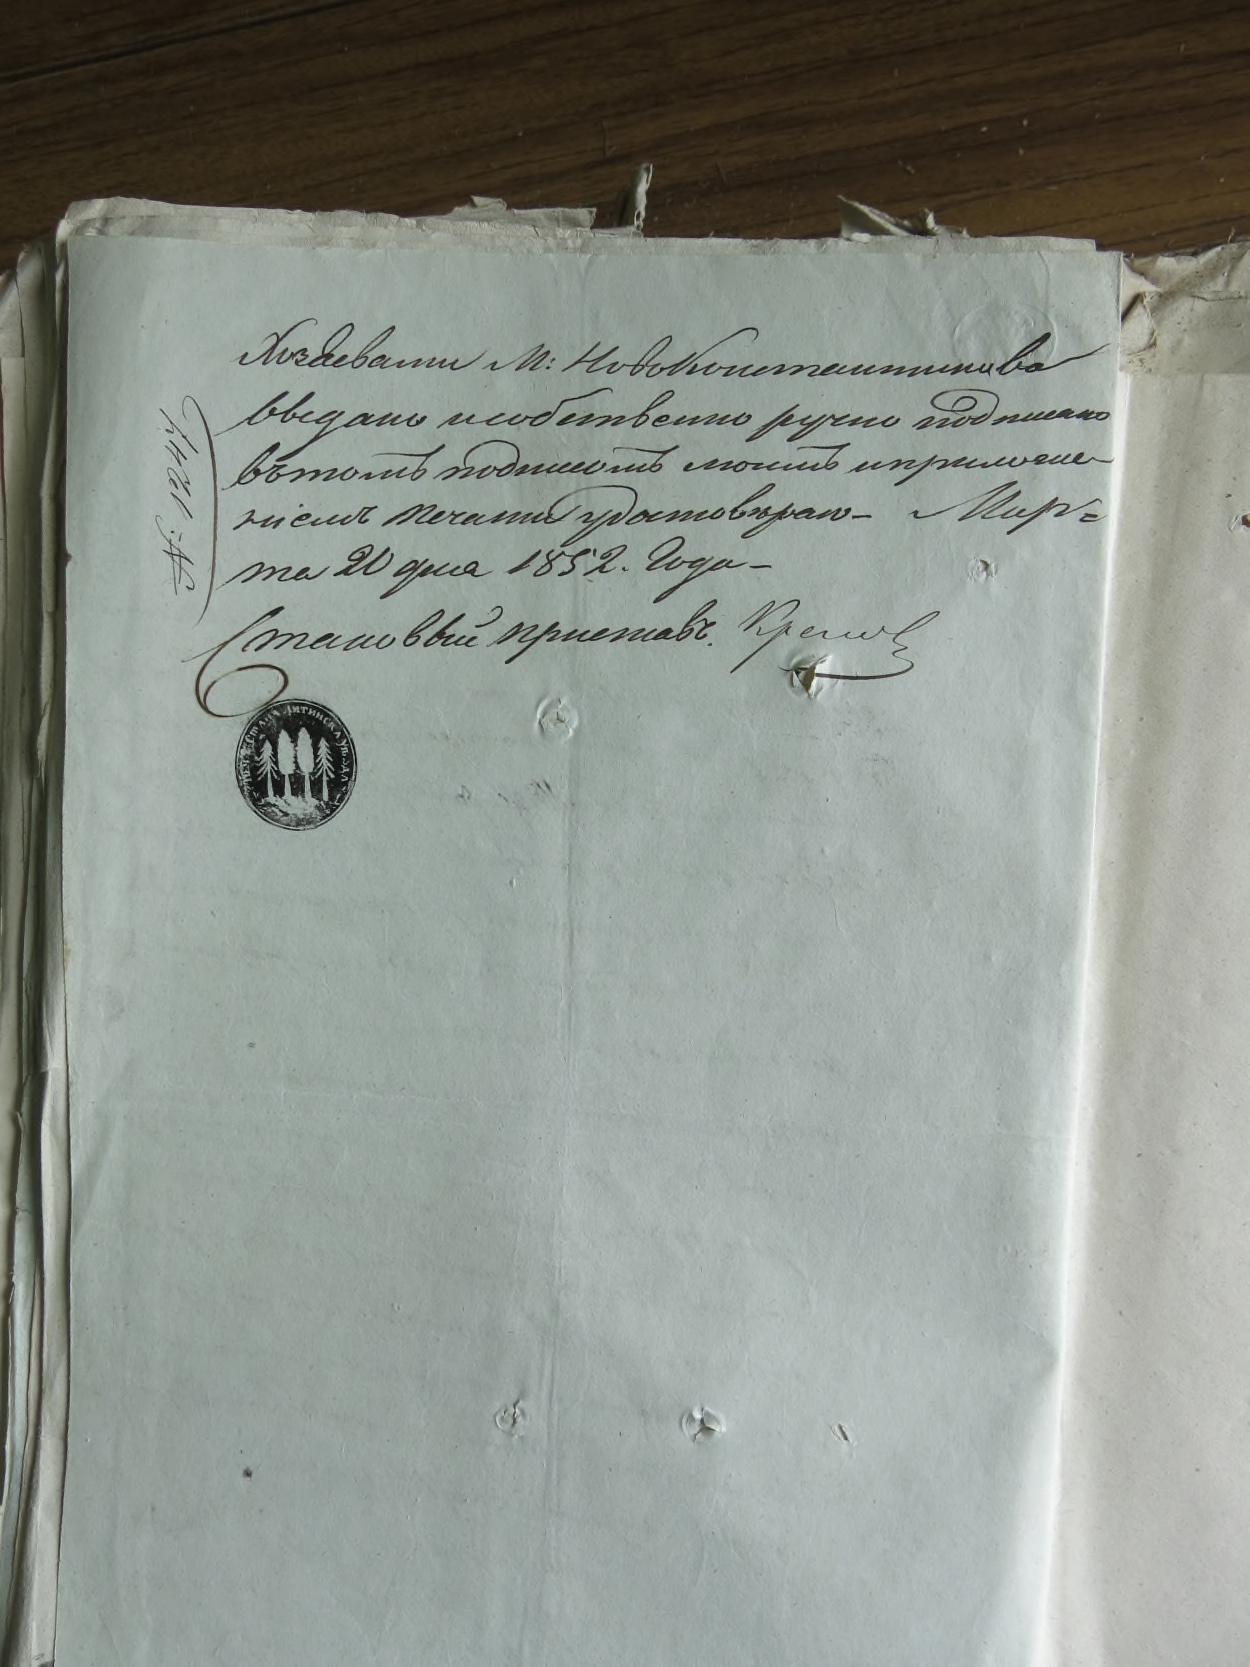 Хозяевами М: Новоконстантинова
введано исобственно ручно подписано
вътомъ подписомъ моимъ иприложе-
ніемъ печати удостовѣраю- Мар=
та 20 дня 1852. Года-
Становый приставъ.
№: 1274